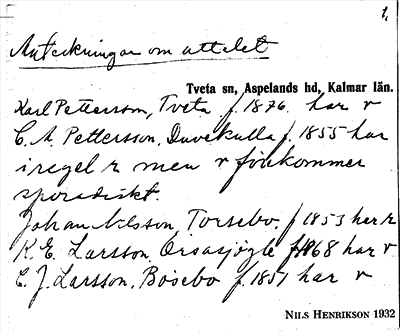 1.
Anteckningar om uttalet
Tveta sn, Aspelands hd, Kalmar län.
Karl Pettersson, Tveta f. 1876. har v
C. A. Pettersson, Duvekulla f. 1855 har
i regel r men v förekommer
sporadiskt.
Johan Nilsson, Torsebo. f 1853 har r
K. E. Larsson, f 1868 har v.
C. J. Larsson, Bosebo f. 1851 har v
NILS HENRIKSON 1932